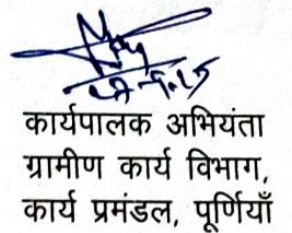 कार्यपालक अभियंता
ग्रामीण कार्य विभाग,
कार्य प्रमंडल, पूर्णियाँ